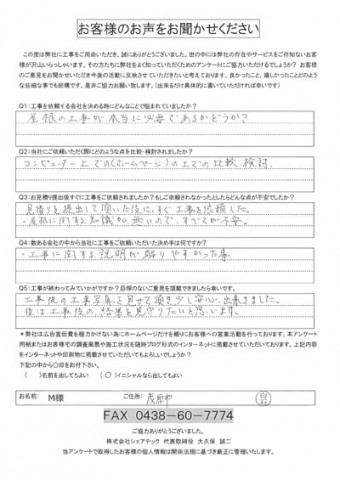 お客様のお声をお聞かせください
この度は弊社に工事をご用命いただき、誠にありがとうございました。世の中には弊社の存在やサービスをご存知ないお客
様が沢山いらっしゃいます。その方たちに弊社をよく知っていただくためのアンケートにご協力いただけるでしょうか? お客様
のご意見をお聞かせいただき今後の活動に反映させていただきたいと考えております。良かったこと、嬉しかったことどのよう
な些細な事でも結構です。是非ご協力お願い致します。(出来るだけ具体的に書いていただければ幸いです)
Q1:工事を依頼する会社を決める時にどんなことで悩まれていましたか?
屋根の工事が本当に必要であるかどうか?
Q2:当社にご依頼いただく際にどのような点を比較・検討されましたか?
コンピューター上での(ホームページ)の上での比較、検討、
Q3:お見積り提出後すぐに工事をご依頼されましたか?もしご依頼されなかったとしたらどんな点が不安でしたか?
見積りを提出して頂いた後に、すぐ工事を依頼した。
・屋根に関する知識が無いので、すべてが不安。
Q4:数ある会社の中から当社に工事をご依頼いただいた決め手は何ですか?
・工事に関する説明が解りやすかった事
Q5:工事が終わってみていかがですか?忌憚のないご意見をお聞かせ頂けましたら幸いです。
工事後の工事写真を見せて頂き少し安心出来ました。
後は工事後の、結果を見守りたいと思います。
*弊社は広告宣伝費を極力かけない為にホームページだけを頼りにお客様への営業活動を行っております。本アンケート
用紙またはお客宅での調査風景や施工状況を随時ブログ形式のインターネットに掲載させていただいております。上記内容
をインターネットや印刷物に掲載させていただいてもよろしいでしょうか?
下記の中から○印をお付下さい。
( )名前を出してもよい (○)イニシャルなら出してもよい
お名前: M様 ご住所: 茂原市
FAX 0438-60-7774
ご協力ありがとうございました。
株式会社シェアテック 代表取締役 大久保 誠二
当アンケートで取得したお客様の個人情報は関係法規に基づき厳正に管理いたします。